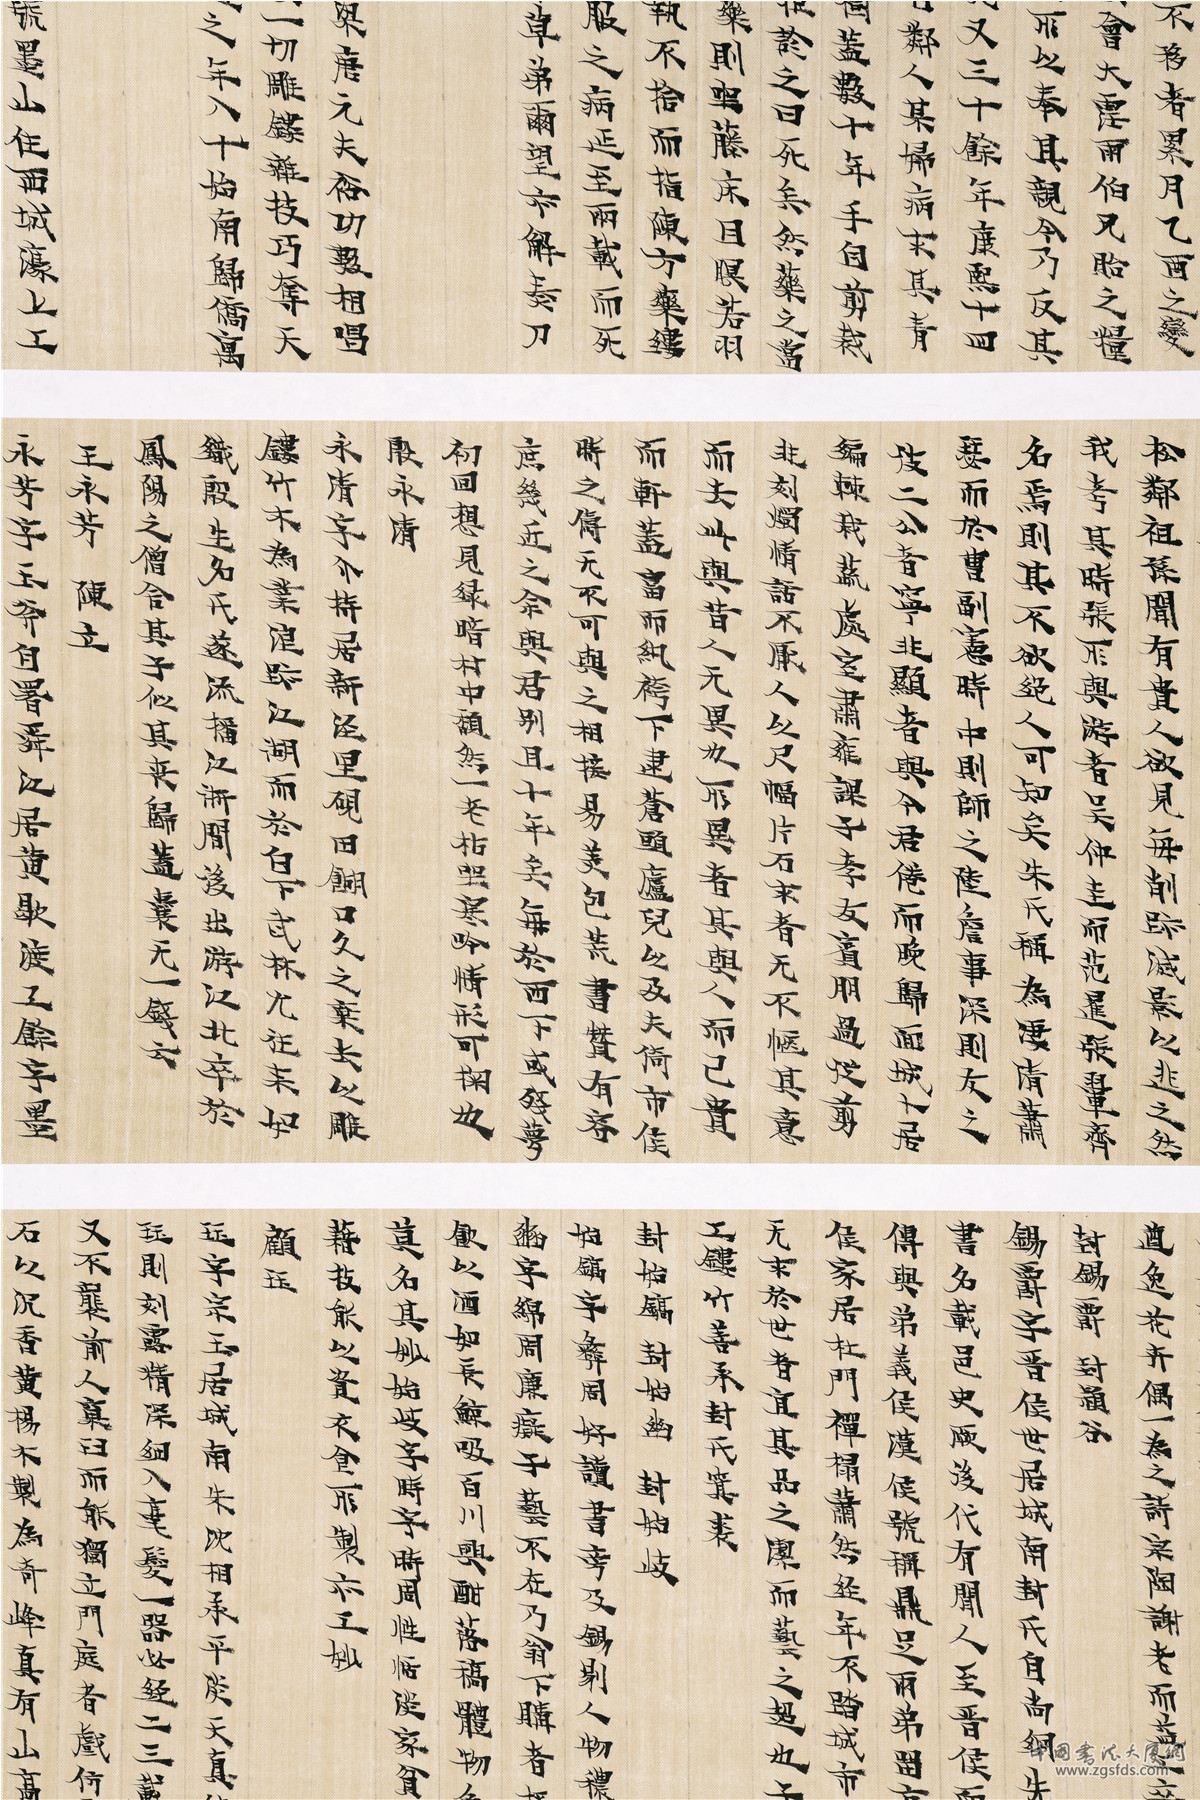 不移者累月乙酉之變
會大霪雨伯兄貽之糧
所以奉其親今乃反其
又三十餘年康熙十四
鄰人某婦病求其青
蓋數十年手自剪裁
於之曰死矣然藥之當
藥則臥藤床目瞑若羽
執不拾而指陳方藥縷
服之病延至兩載而死
草弟爾望亦解表刀
與唐元夫俗功輩相唱
一切雕鏤雜技巧奪天
之年八十始南歸僑寓
號墨山住西城濠上工
松鄰祖孫聞有貴人欲見每削跡滅影以逃之然
我考其時張所與游者吳仲圭而范暹張翬齊
名焉則其不欲絕人可知矣朱氏稱為淒清蕭
瑟而於曹副憲時中則師之陸詹事深則友之
彼二公者寧非顯者與令君倦而晚歸面城卜居
編棘栽蔬處室肅雍課子孝友賓朋過從剪
韭刻燭情話不厭人以尺幅片石求者无不愜其意
而去此與昔人无異也所異者其與人而已貴
而軒蓋富而紈袴下逮蒼頭廬兒以及夫倚市侯
時之儔无不可與之相接易美包荒書贊有容
庶幾近之余與君別且十年矣每於西下或發夢
初回想見綠暗村中頹然一老枯坐寒吟情形可掬也
殷永清
永清字介持居新涇里硯田餬口久之棄去以雕
鏤竹木為業浪跡江湖而於白下武林尤往來如
織殷生名氏遂流播江浙間後出游江北卒於
鳳陽之僧舍其子似其喪歸蓋囊无一錢云
王永芳 陳立
永芳字玉斧自署舜江居黃歇渡工餘字墨
逎逸花卉偶一為之詩宗陶謝老而
封錫爵 封通谷
錫爵字晉侯世居城南封氏自尚綱朱
書名載邑史厥後代有聞人至晉侯而
傳與弟義侯漢侯號稱鼎足兩弟
侯家居杜門禪榻蕭然經年不踏城市
无求於世者宜其品之潔而藝之超也子
工鏤竹善承封氏箕裘
封始鎬 封始豳 封始岐
始鎬字彝周好讀書旁及錫剔人物穠
豳字綿周廉癡于藝不在乃翁下購者
飲以酒如長鯨吸百川興酣落稿體物
莫名其妙始岐字時字時周性恬淡家貧
藉技能以資衣食所製亦工妙
顧珏
珏字宗玉居城南朱沈相承平淡天真
珏則刻露精深細入毫髮一器必經二三載
又不襲前人窠臼而能獨立門庭者戲仿
石以沉香黃楊木製為奇峰真有山高
中國書法大廈網
www.zgsfds.com